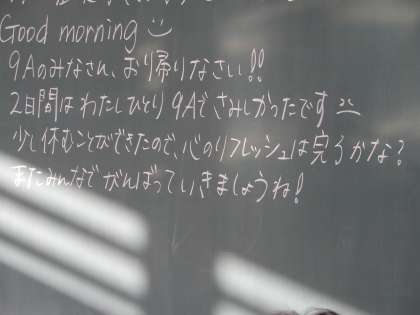 Good morning
9Aのみなさん、おり帰りなさい!!
2日間はわたしひとり9Aでさみしかったです
少し休むことができたので、心のリフレッシュは完了かな?
またみんなでがんばっていきましょうね!